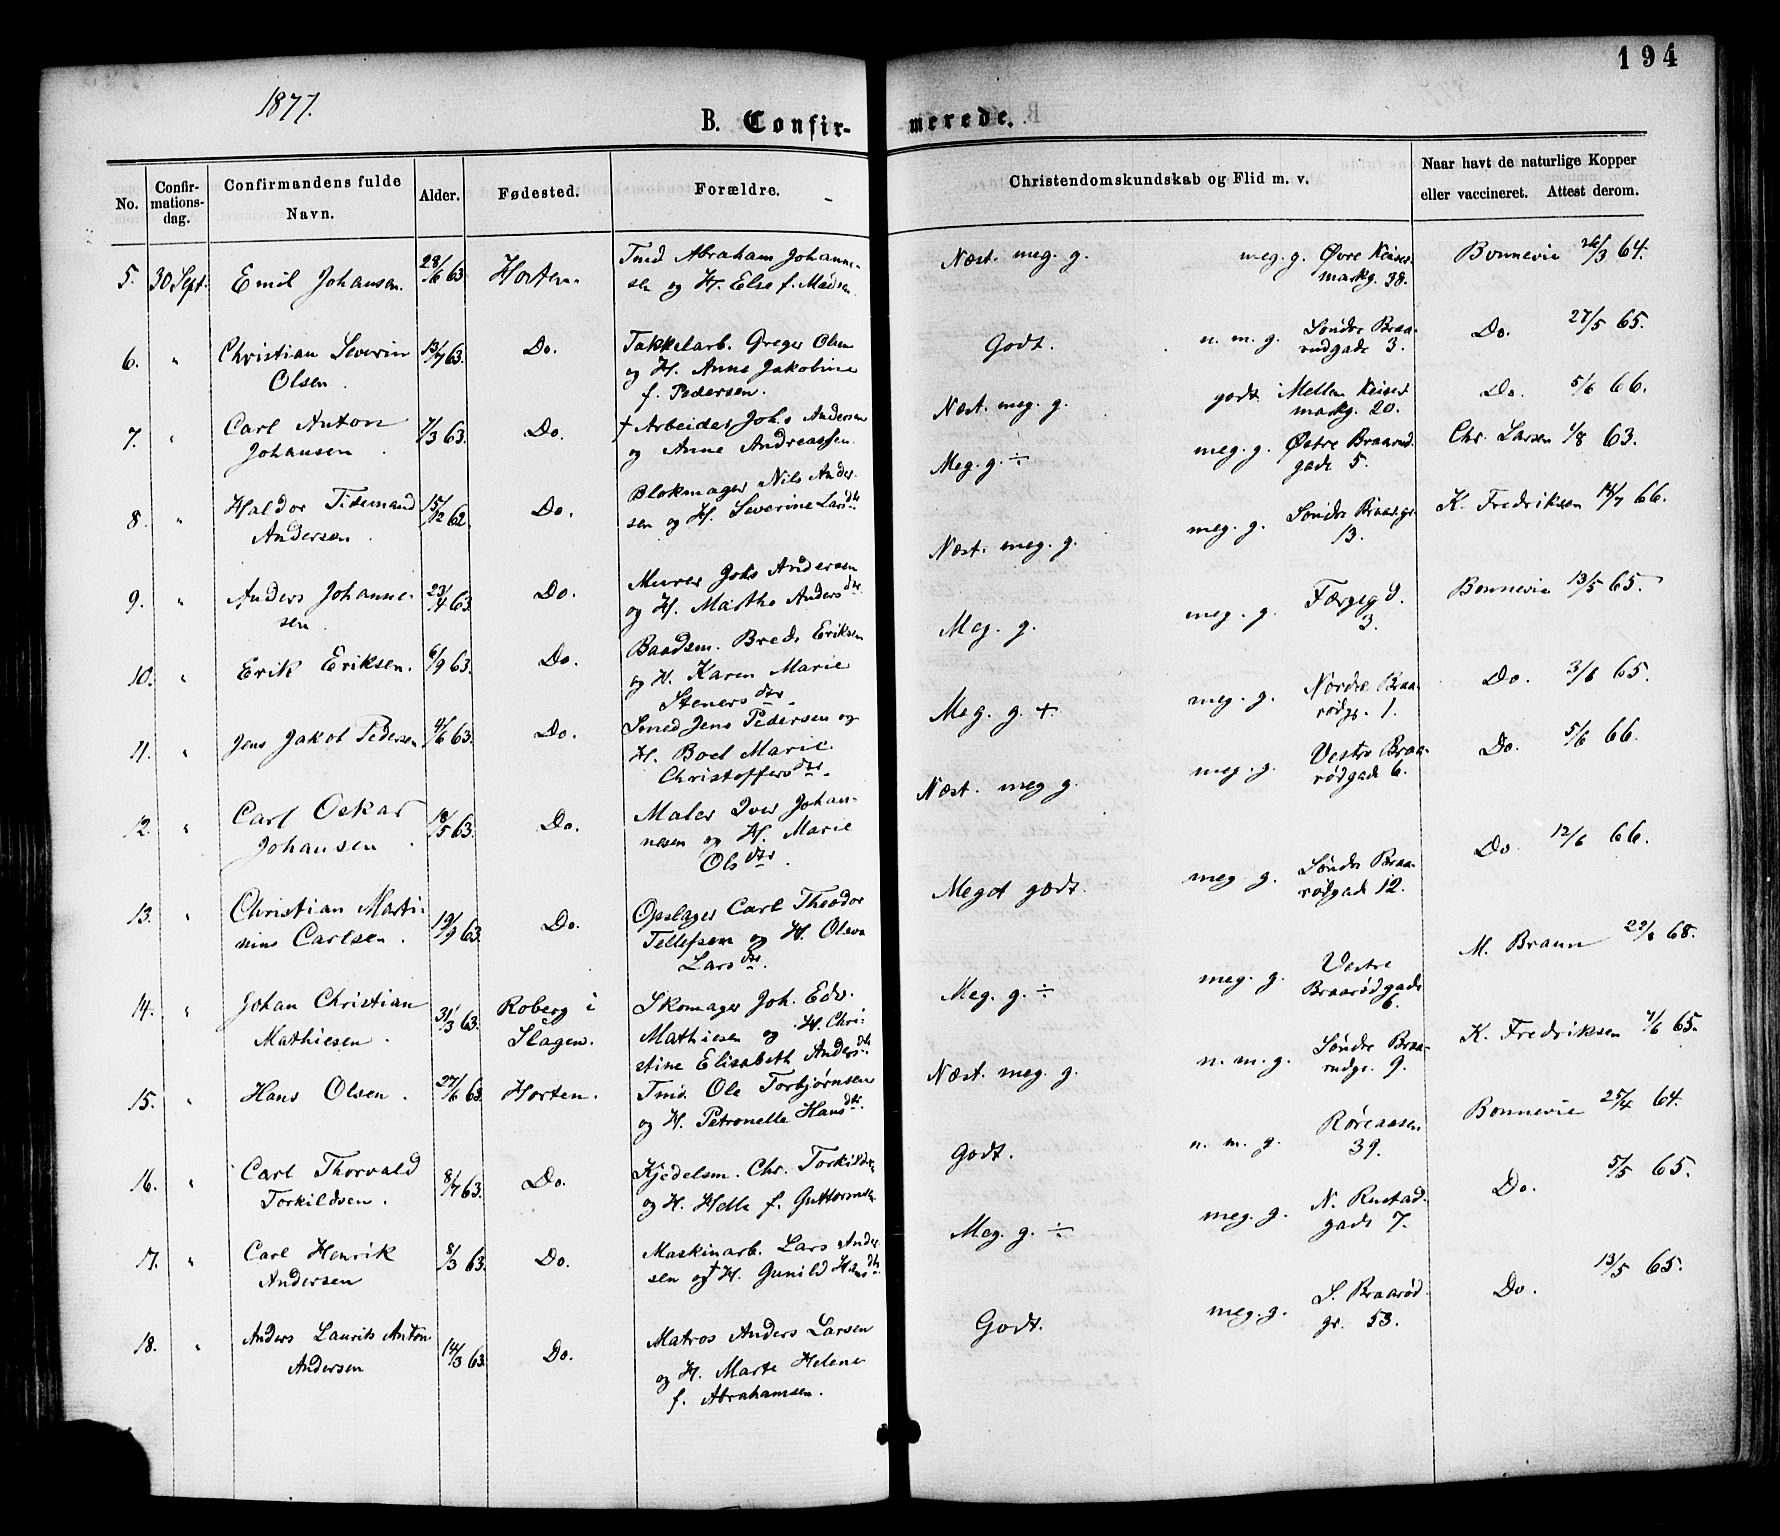 194
1877.
B. Confir-
merede.
No.
Confir-
mations-
dag.
Confirmandens fulde
Navn.
Alder.
Fødested.
Forældre.
Christendomskundskab og Flid m. v.
Naar havt de naturlige Kopper
eller vaccineret. Attest derom.
5. 30 Sept. Emil Johansen. 28/6 63. Horten.
Tmd Abraham Johanne-
sen og H. Else f. Madsen.
Næst. meg. g. meg. g. Øvre Keiser
markg. 38.
Bonnevie 26/3 64.
6. " Christian Severin
Olsen.
13/7 63. Do.
Takkelarb. Greger Olsen
og H. Anne Jakobine
f. Pedersen.
Godt. n. m. g. Søndre Braa-
rudgade 3.
Do. 27/5 65.
7. " Carl Anton
Johansen.
7/3 63. Do.
† Arbeider Johs Andersen
og Anne Andreassen.
Næst. meg. g. godt. Mellem Keiser
markg. 20.
Do. 5/6 66.
8. " Haldor Tidemand
Andersen.
15/12 62. Do.
Blokmager Nils Ander-
sen og H. Severine Larsdtr
Meg. g. ÷ meg. g. Østre Braarud
gade 5.
Chr. Larsen 1/8 63.
9. " Anders Johanne-
sen
23/4 63. Do.
Murer Johs Andersen
og H. Marthe Andersdtr
Næst. meg. g. meg. g. Søndre Braargr.
13.
K. Fredriksen 14/7 66.
10. " Erik Eriksen. 6/9 63. Do.
Baadsm. Brede Eriksen
og H. Karen Marie
Stenersdtr.
Meg. g. meg. g. Færgeg d.
3.
Bonnevie 13/5 65.
11. " Jens Jakob Pedersen 4/6 63. Do.
Smed Jens Pedersen og
H. Boel Marie
Christoffersdtr.
Meg. g. + meg. g. Nordre Braa-
rødg. 1.
Do. 3/6 65.
12. " Carl Oskar
Johansen.
18/5 63. Do.
Maler Iver Johan-
nesen og H. Marie
Olsdtr.
Næst. meg g. meg. g. Vestre Braa-
rødgade 6.
Do. 5/6 66.
13. " Christian Marti-
nius Carlsen.
19/9 63. Do.
Opslager Carl Theodor
Tellefsen og H. Olava
Larsdtr.
Meget godt. meg. g. Søndre Braa-
rødgade 12.
Do. 12/6 66.
14. " Johan Christian
Mathiesen.
31/3 63. Roberg i
Slagen.
Skomager Joh. Edv.
Mathiesen og H. Chri-
stine Elisabeth Andersdtr
Meg. g. ÷ meg. g. Vestre
Braarødgade
6.
M. Braun 22/8 68.
15. " Hans Olsen. 27/6 63. Horten.
Tmd. Ole Torbjørnsen
og H. Petronelle Hansdtr.
Næst. meg. g. n. m. g. Søndre Braa-
rudgr. 9.
K. Fredriksen 7/6 65.
16. " Carl Thorvald
Torkildsen.
8/7 63. Do.
Kjedelsm. Chr. Torkildsen
og H. Helle f. Guttormsen
Godt. n. m. g. Røreaasen
39.
Bonnevie 25/4 64.
17. " Carl Henrik
Andersen
8/3 63. Do.
Maskinarb. Lars Ander
sen og † H. Gunild Hansdtr.
Meg. g. ÷ meg. g. N. Rustad-
gade 7.
Do. 5/5 65.
18. " Anders Laurits Anton
Andersen
14/3 63. Do.
Matros Anders Larsen
og H. Marte Helene
f. Abrahamsen.
Godt. meg. g. S. Braarød-
gr. 53.
Do. 13/5 65.